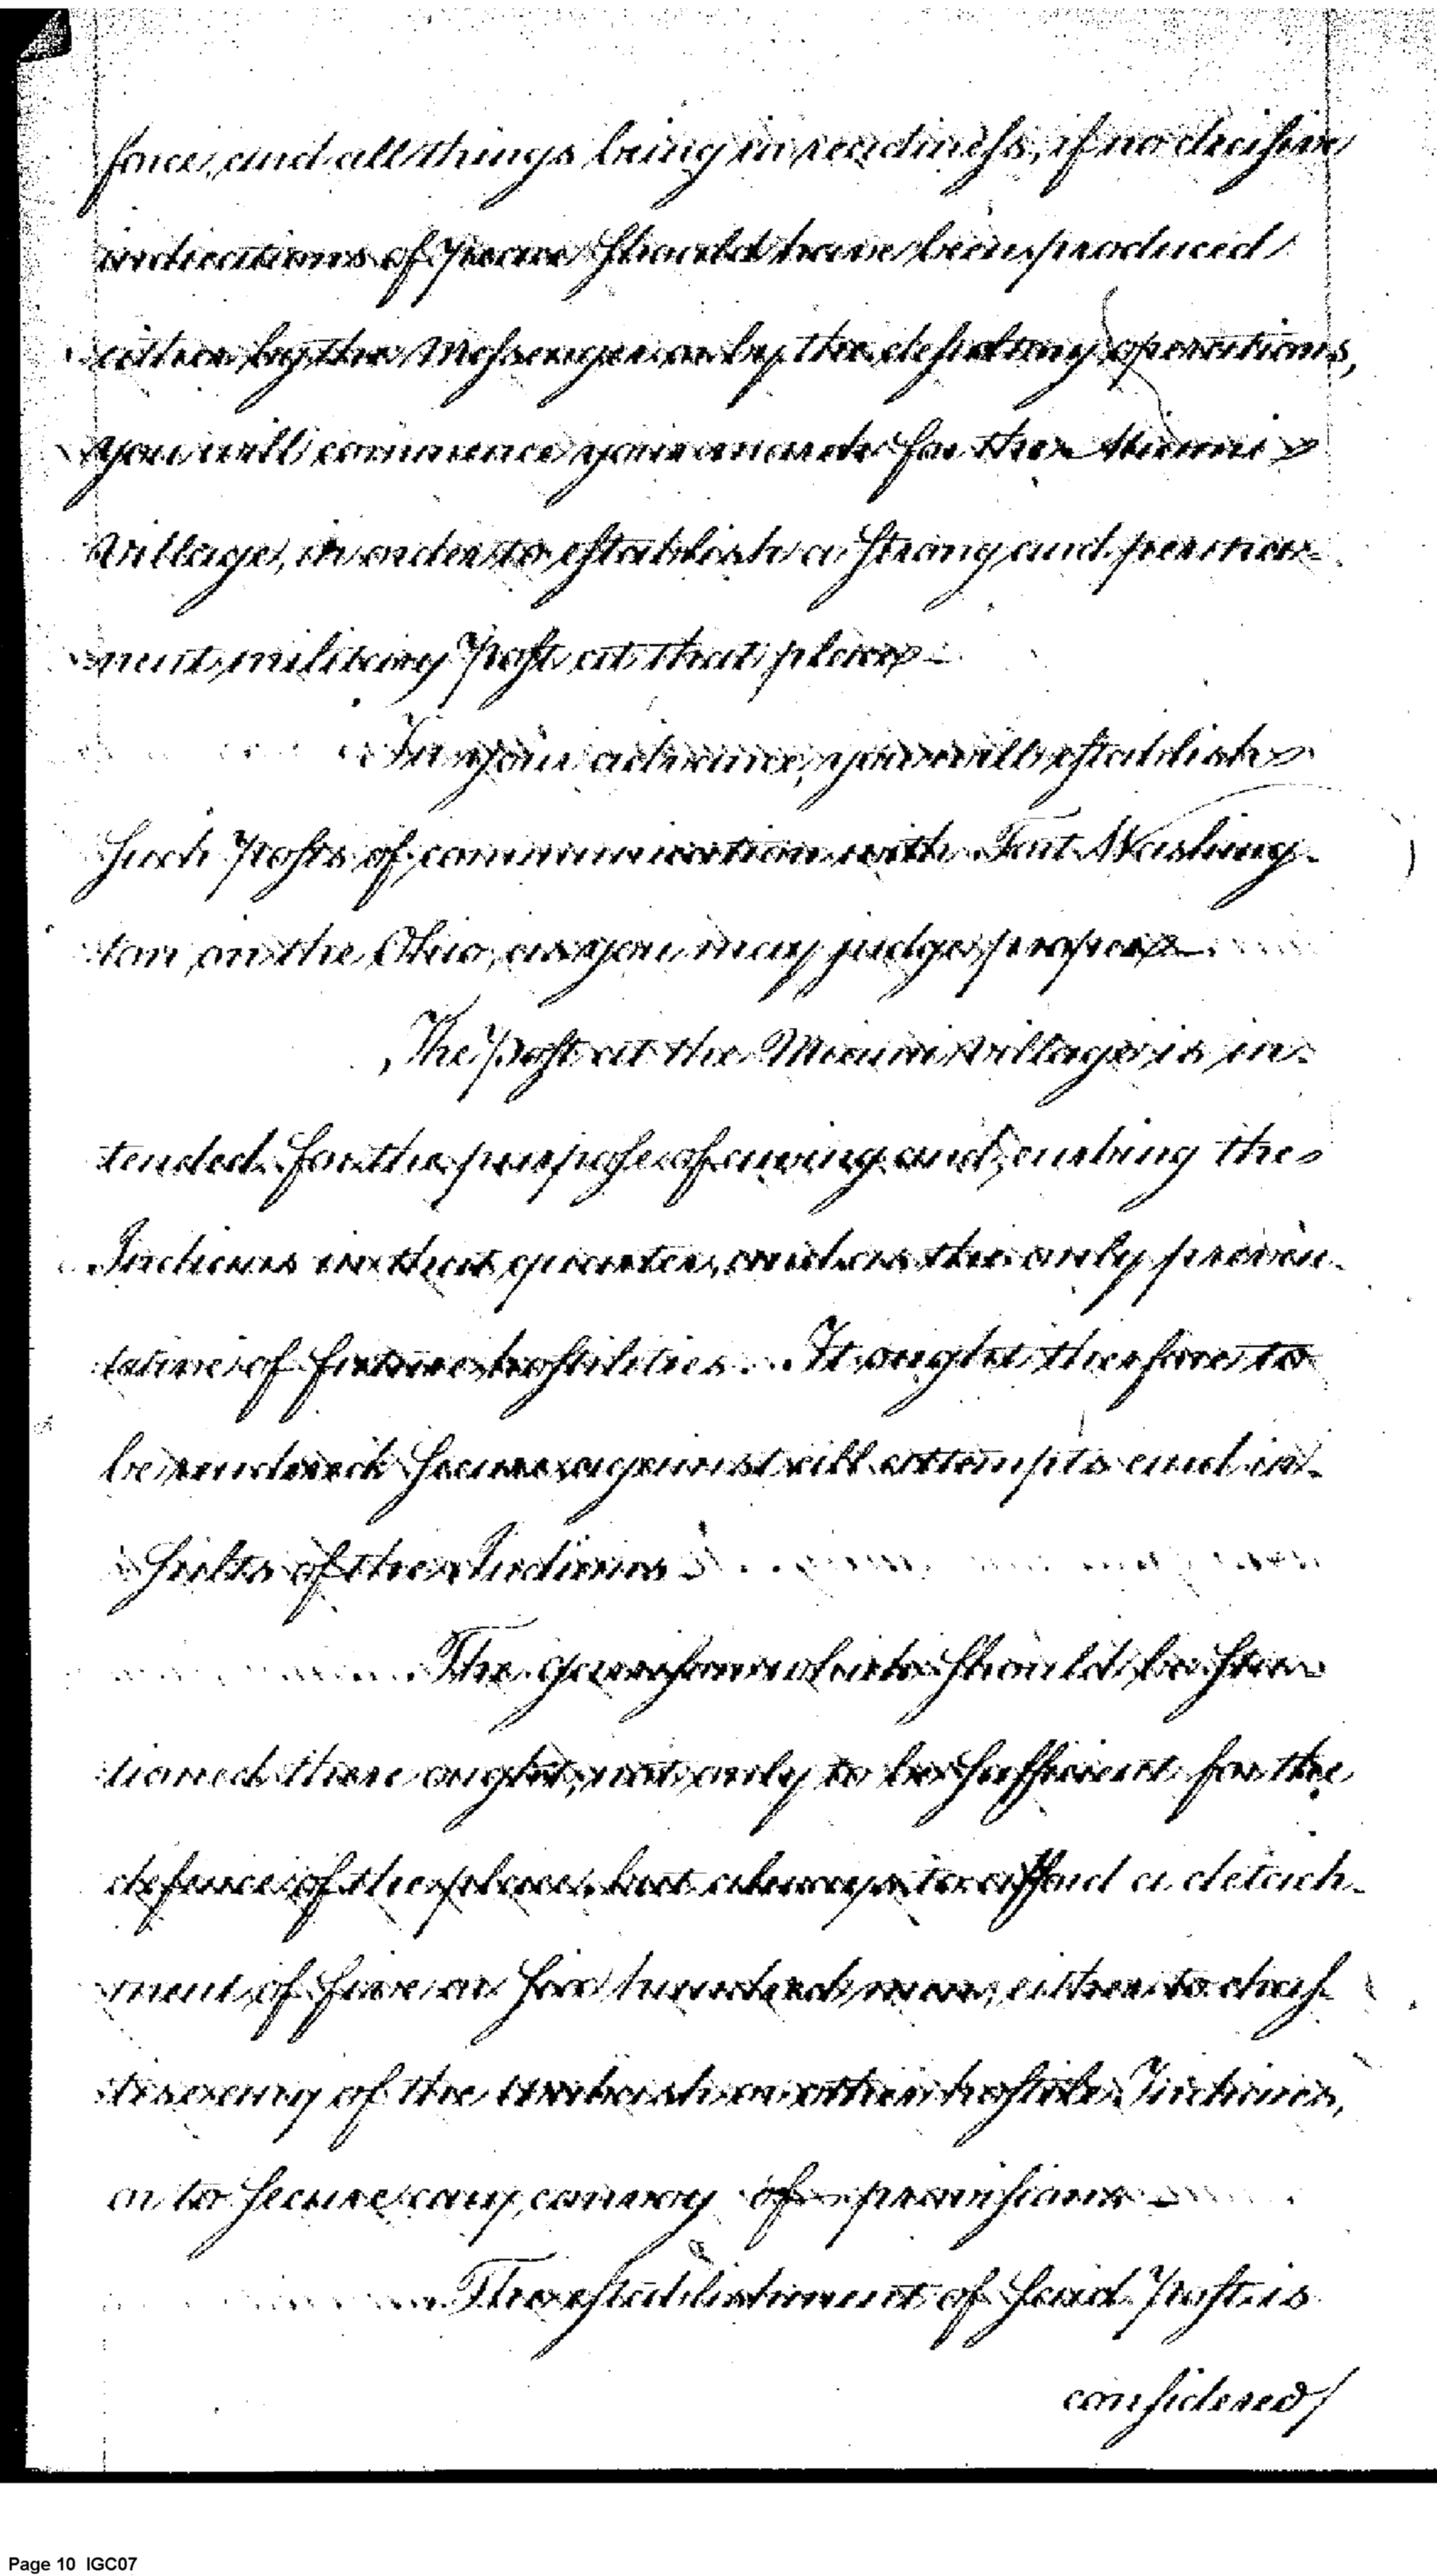 force, and all things being in readiness, if no decisive
indications of peace should have been produced
either by the Messenger or by the desultory operations,
you will commence your march for the Miami
Village, in order to establish a strong and perma-
nent military Post at that place—
In your advance, you will establish
such Posts of communication with Fort Washing-
ton on the Ohio, as you may judge proper—
The Post at the Miami Village is in-
tended for the purpose of awing and curbing the
Indians in that quarter, and as the only preven-
tative of future hostilities. It ought therefore to
be rendered secure against all attempts and in-
sults of the Indians
The garrison which should be sta
tioned there ought, not only to be sufficient for the
defence of the place, but always to afford a detach-
ment of five or six hundred men, either to chas-
tise any of the Wabash or other hostile Indians,
or to secure any convoy of provisions—
The establishment of said Post is
considered
Page 10 IGC07